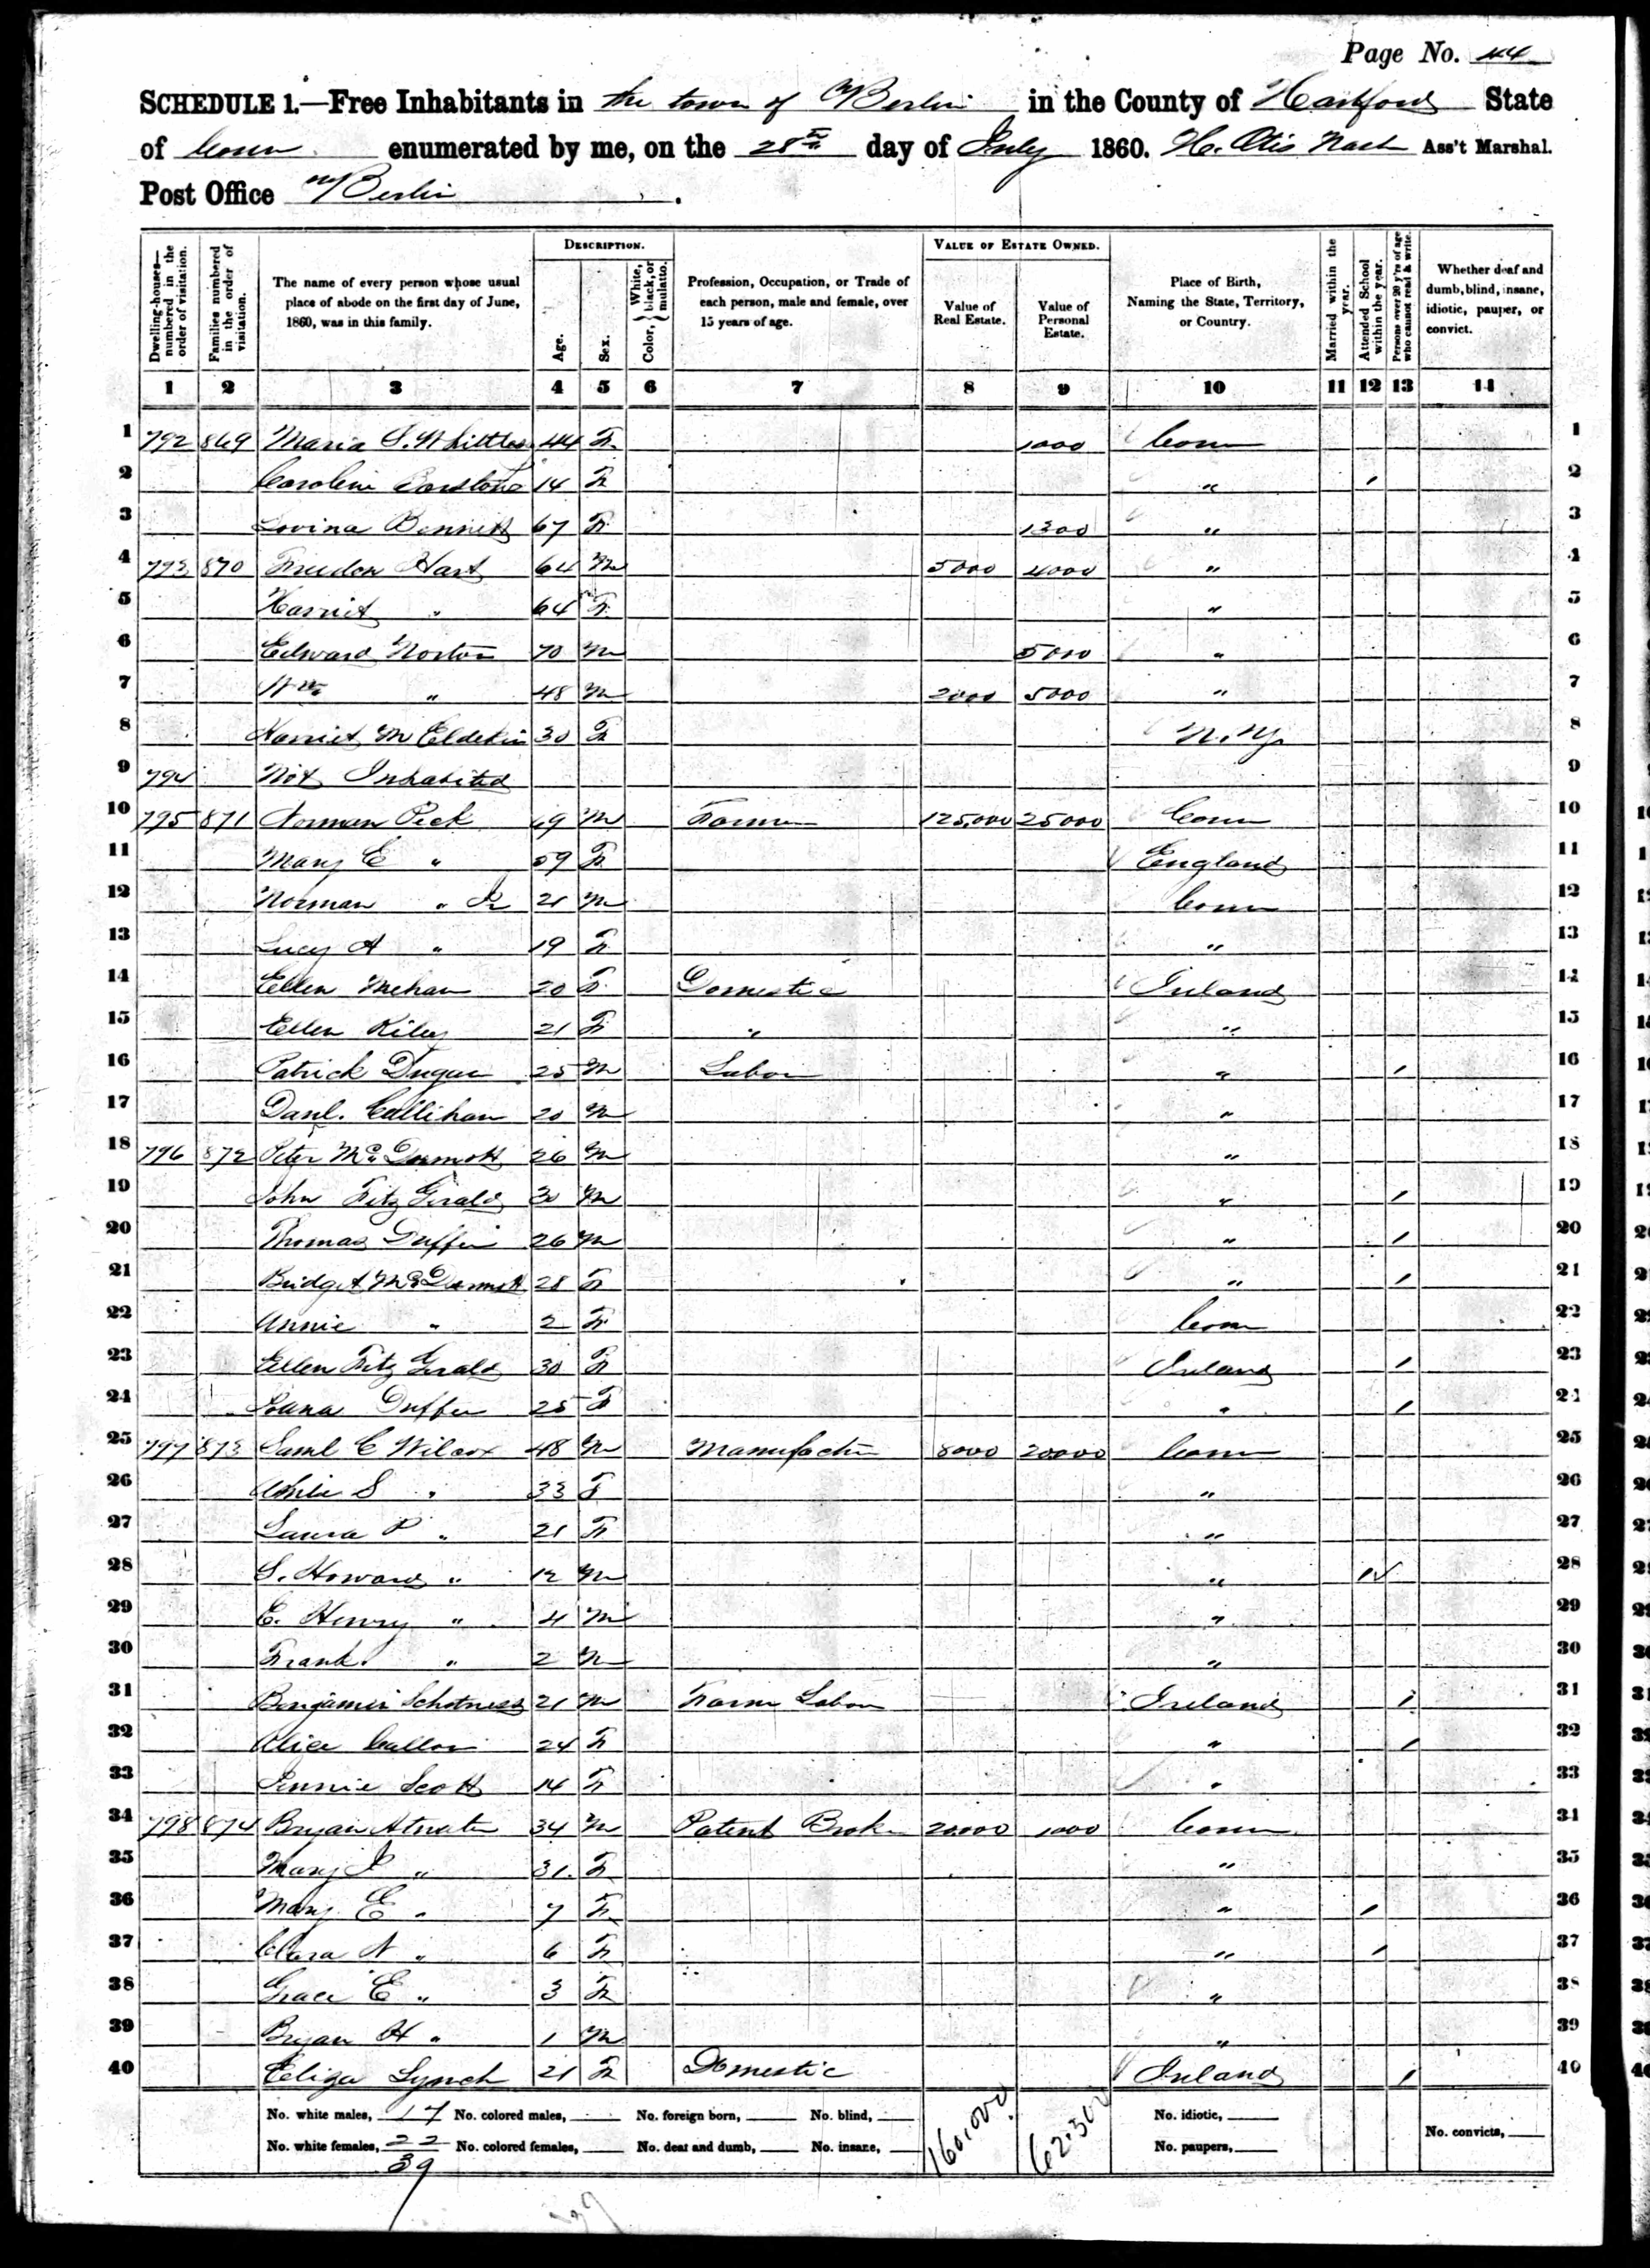 Page No. 44
SCHEDULE 1.—Free Inhabitants in the town of Berlin in the County of Hartford State
of Conn enumerated by me, on the 28th day of July 1860. H. Otis Nash Ass't Marshal.
Post Office Berlin.
Dwelling-houses—numbered in the order of visitation.
Families numbered in the order of visitation.
The name of every person whose usual place of abode on the first day of June, 1860, was in this family.
DESCRIPTION.
Age.
Sex.
Color, } White, black, or mulatto.
Profession, Occupation, or Trade of each person, male and female, over 15 years of age.
VALUE OF ESTATE OWNED.
Value of Real Estate.
Value of Personal Estate.
Place of Birth, Naming the State, Territory, or Country.
Married within the year.
Attended School within the year.
Persons over 20 y'rs of age who cannot read & write.
Whether deaf and dumb, blind, insane, idiotic, pauper, or convict.
1 2 3 4 5 6 7 8 9 10 11 12 13 14
1 792 869 Maria S. Whittlesey 44 F 1000 Conn 1
2 Caroline 14 F " / 2
3 Lovina Bennett 67 F 1300 " 3
4 793 870 Freedom Hart 64 M 5000 4000 " 4
5 Harriet " 64 F " 5
6 Edward Norton 70 M 5000 " 6
7 Wm " 48 M 2000 5000 " 7
8 Harriet M 30 F N.Y. 8
9 794 Not Inhabited 9
10 795 871 Norman Peck 69 M Farmer 125,000 25000 Conn 10
11 Mary E " 59 F England 11
12 Norman " Jr 21 M Conn 12
13 Lucy A " 19 F " 13
14 Ellen Mehan 20 F Domestic Ireland 14
15 Ellen Riley 21 F " " 15
16 Patrick Dugan 25 M Labor " / 16
17 Danl. Callihan 20 M " 17
18 796 872 Peter McDermott 26 M " 18
19 John Fitz Gerald 30 M " / 19
20 Thomas Duffin 26 M " / 20
21 Bridget McDermott 28 F " / 21
22 Annie " 2 F Conn 22
23 Ellen Fitz Gerald 30 F Ireland / 23
24 25 F " / 24
25 797 873 Saml C Wilcox 48 M Manufactur 8000 20000 Conn 25
26 S " 33 F " 26
27 Laura P " 21 F " 27
28 S. Howard " 12 M " / 28
29 E. Henry " 4 M " 29
30 Frank " 2 M " 30
31 Benjamin 21 M Farm Labor Ireland / 31
32 Alice 24 F " / 32
33 Jennie Scott 14 F " 33
34 798 874 Bryan Atwater 34 M Patent Broker 20000 1000 Conn 34
35 Mary " 31 F " 35
36 Mary E " 7 F " / 36
37 Clara N " 6 F " / 37
38 Grace E " 3 F " 38
39 Bryan H " 1 M " 39
40 Eliza Lynch 21 F Domestic Ireland / 40
No. white males, 17 No. colored males, No. foreign born, No. blind, 160,000 62.300 No. idiotic,
No. white females, 22 No. colored females, No. deaf and dumb, No. insane, No. paupers, No. convicts,
39
39